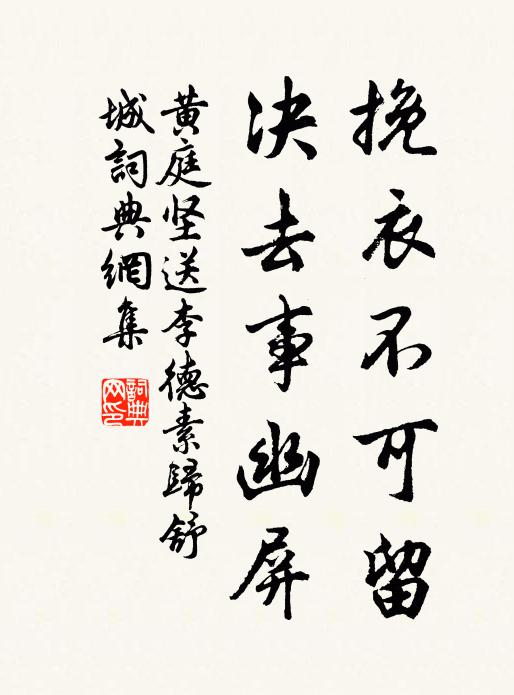 挽衣不可留
决去事幽屏
黄庭坚送李德素歸舒
城詞典網集
詞典
网印